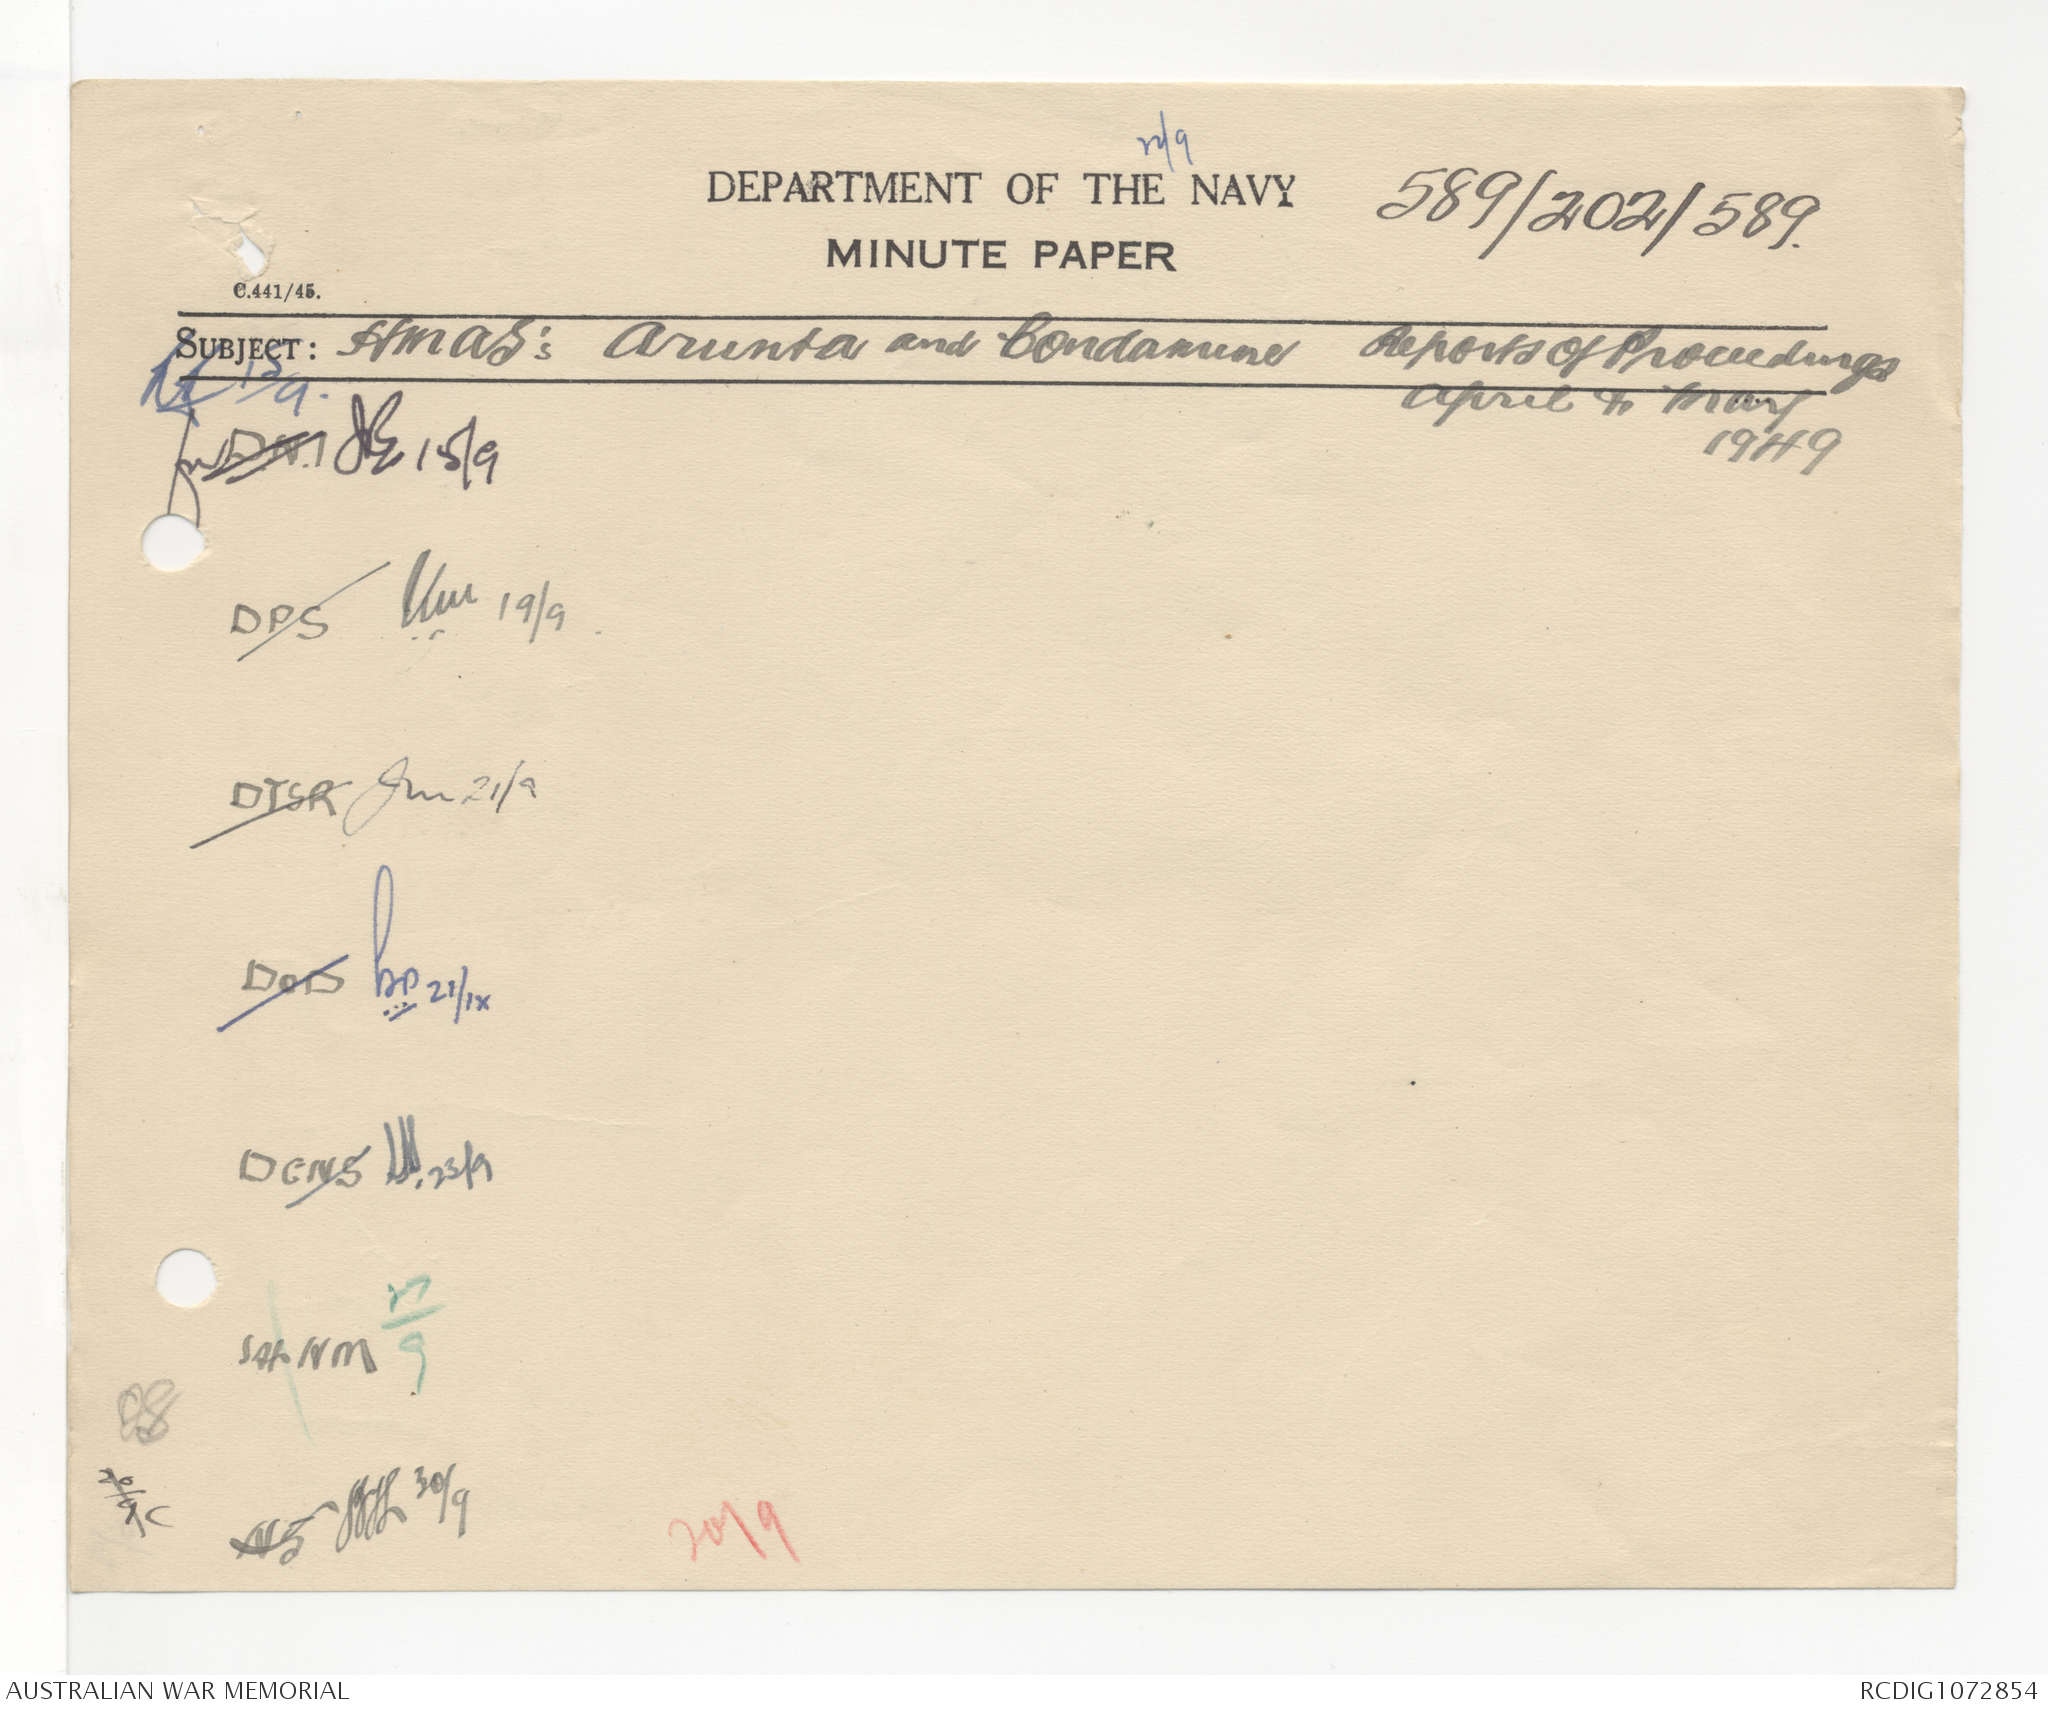 DEPARTMENT OF THE NAVY
589/202/589.
MINUTE PAPER
C.441/45.
SUBJECT: HMAS's Arunta and Condamine Reports of Proceedings
April to May
1949
D.N.I 15/9
DPS 19/9
DTSR 21/9
DOD 21/IX
DCNS 23/9
NM 27/9
30/9
20/9
AUSTRALIAN WAR MEMORIAL
RCDIG1072854